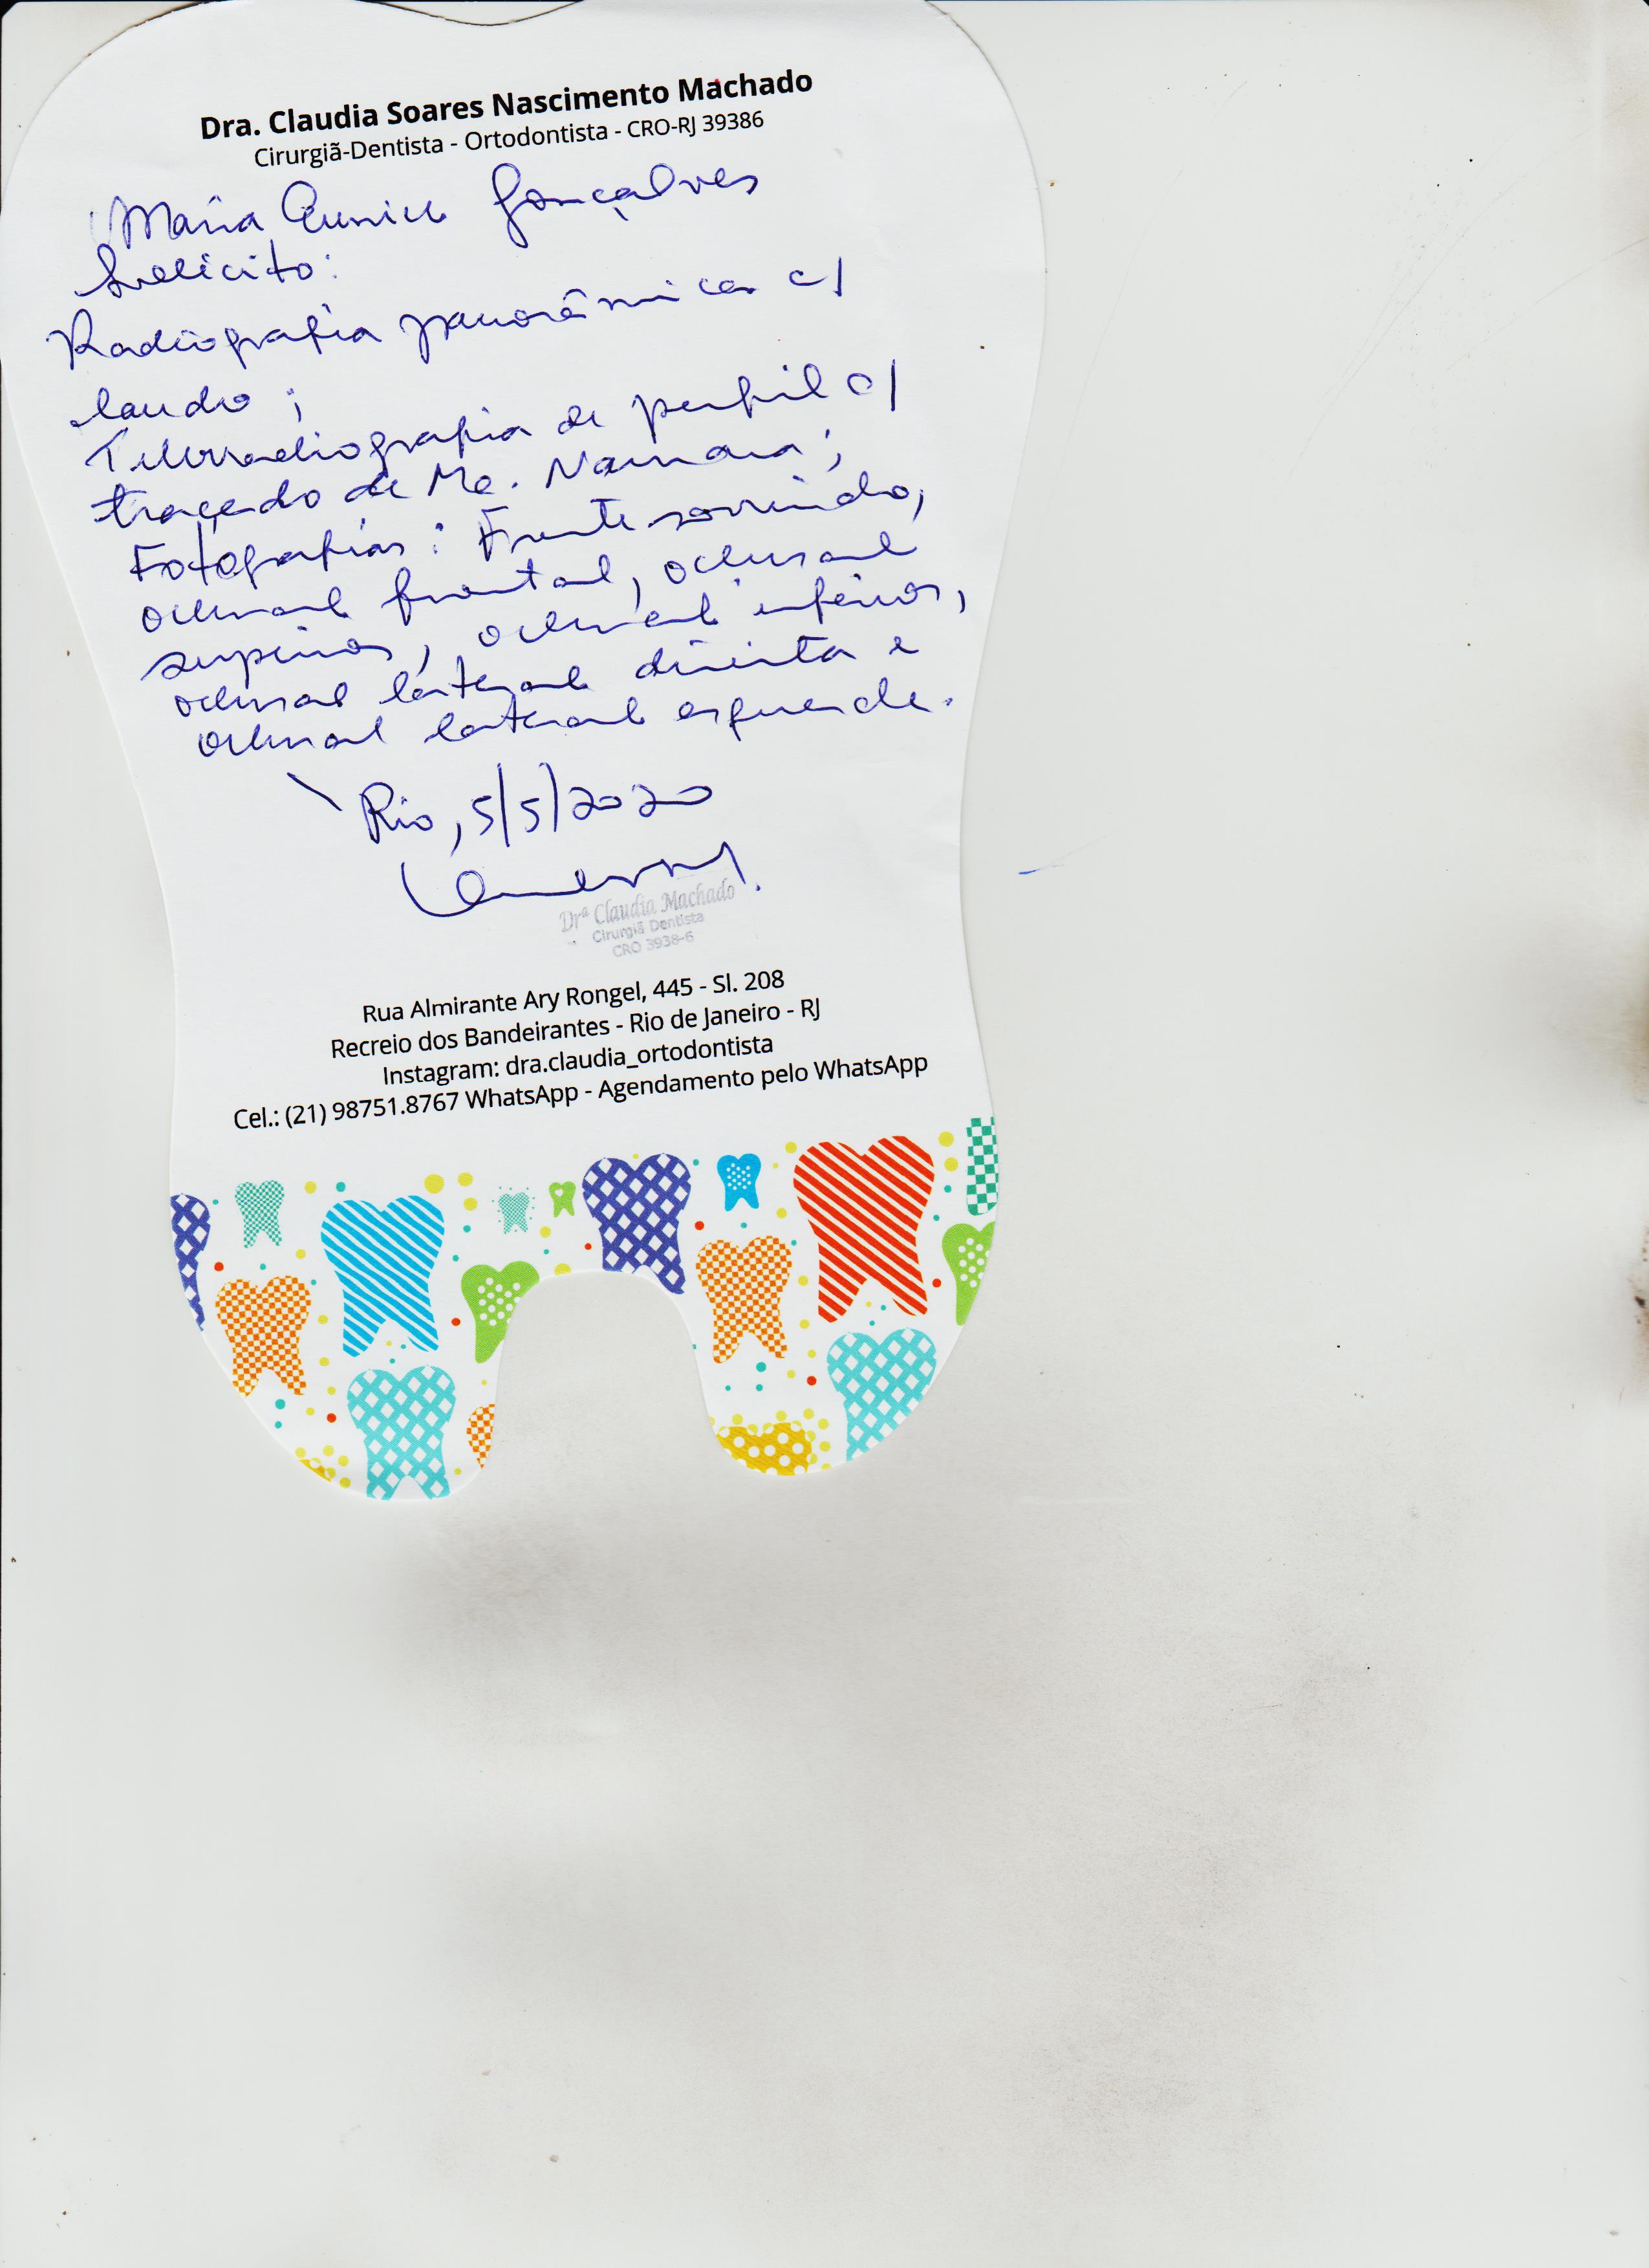 Dra. Claudia Soares Nascimento Machado
Cirurgiã-Dentista - Ortodontista - CRO-RJ 39386
Maria Eunice Gonçalves
Solicito:
Radiografia panorâmica c/
laudo ;
Telerradiografia de perfil c/
traçado de Mc. Namara ;
Fotografias : Frente sorrindo,
oclusal frontal, oclusal
superior, oclusal inferior,
oclusal lateral direita e
oclusal lateral esquerda.
Rio, 5/5/2020
Drª Claudia Machado
Cirurgiã Dentista
CRO 3938-6
Rua Almirante Ary Rongel, 445 - Sl. 208
Recreio dos Bandeirantes - Rio de Janeiro - RJ
Instagram: dra.claudia_ortodontista
Cel.: (21) 98751.8767 WhatsApp - Agendamento pelo WhatsApp